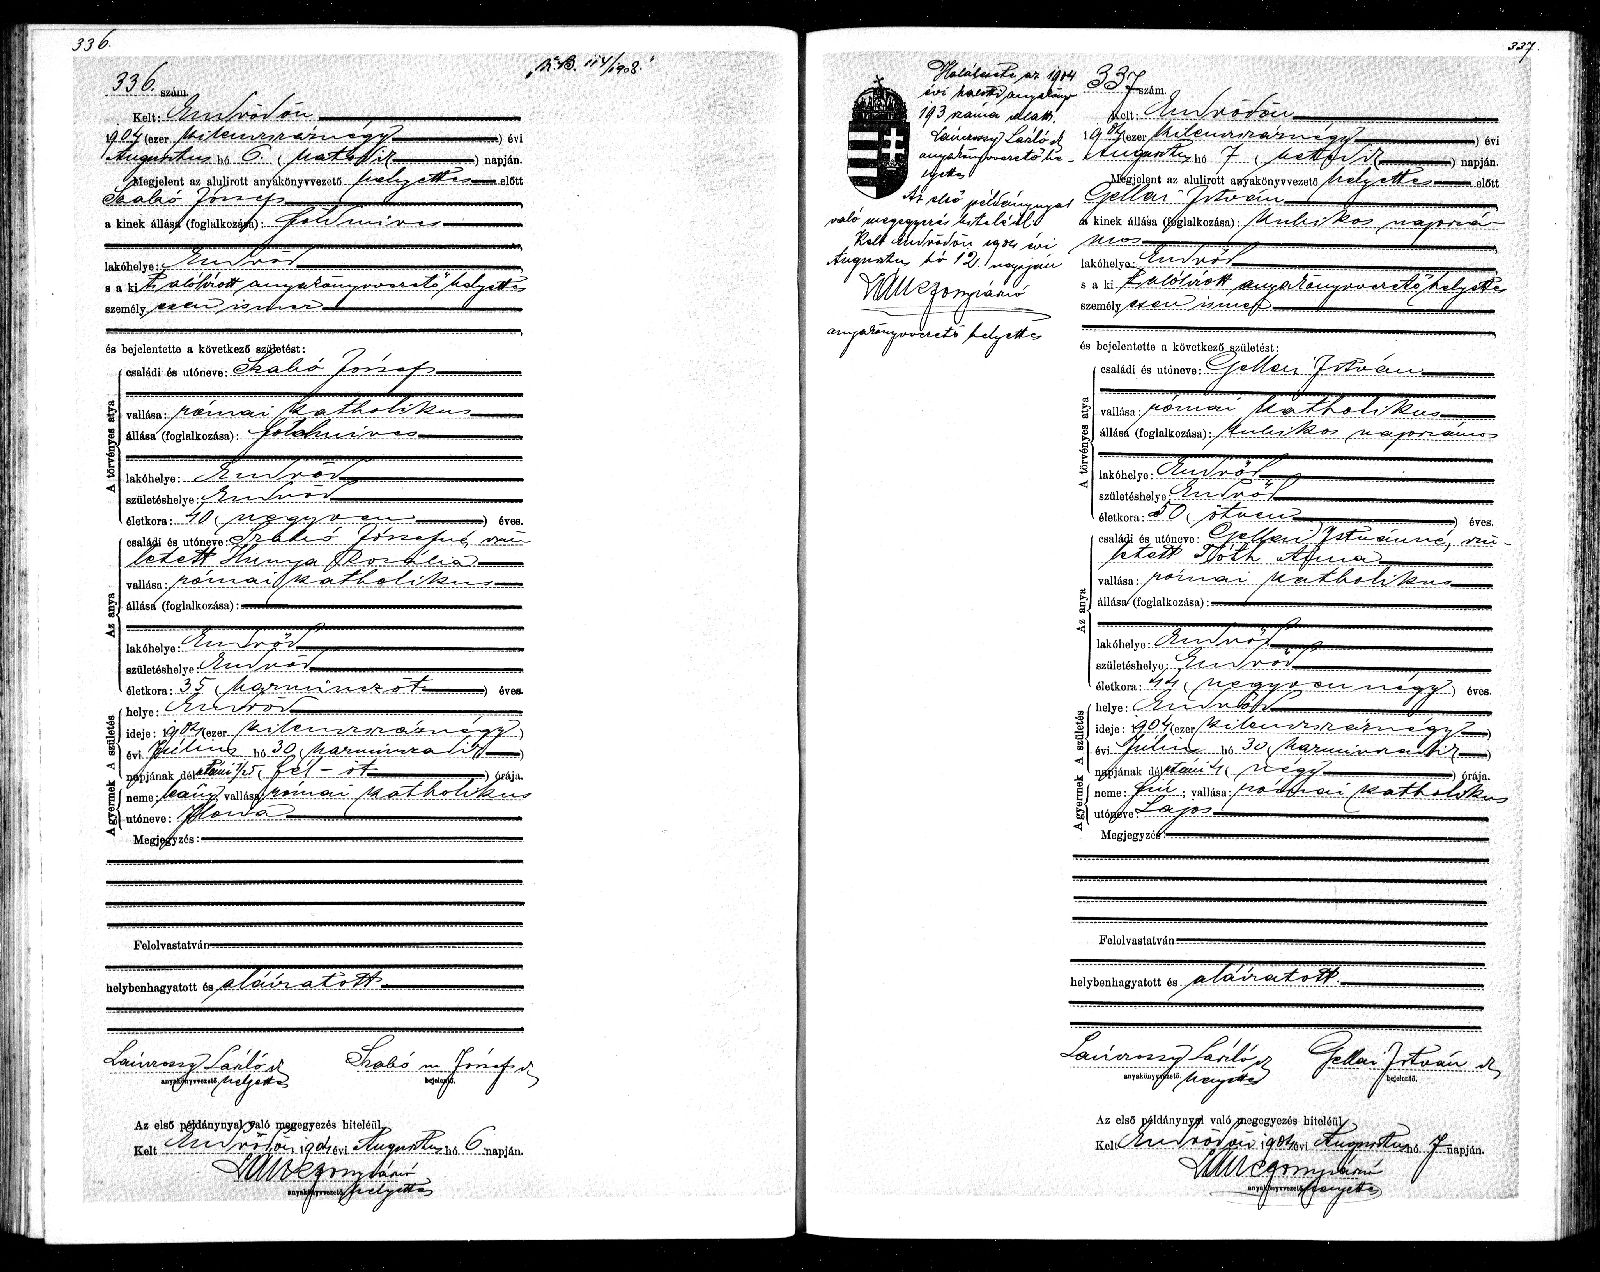 336.
336. szám.
"K.B. 114/1908"
Kelt: Endrődön
1904 (ezer kilenczszáznégy) évi
Augusztus hó 6. (hatodik) napján.
Megjelent az alulirott anyakönyvvezető helyettes előtt
Szabó József
a kinek állása (foglalkozása): földmives
lakóhelye: Endrőd
s a kit alólirott anyakönyvvezető helyettes
személyesen ismer
és bejelentette a következő születést:
A törvényes atya
családi és utóneve: Szabó József
vallása: római katholikus
állása (foglalkozása): földmives
lakóhelye: Endrőd
születéshelye: Endrőd
életkora: 40 (negyven) éves.
Az anya
családi és utóneve: Szabó Józsefné, szü-
letett Hunya Rozália
vallása: római katholikus
állása (foglalkozása):
lakóhelye: Endrőd
születéshelye: Endrőd
életkora: 35 (harminczöt) éves.
A gyermek A születés
helye: Endrőd
ideje: 1904 (ezer kilenczszáznégy)
évi Július hó 30 (harminczadik)
napjának délutáni 1/2 5 (fél-öt) órája.
neme: leány; vallása: római katholikus
utóneve: Ilona
Megjegyzés:
Felolvastatván
helybenhagyatott és aláiratott.
László dr Szabó m József
anyakönyvvezető helyettes bejelentő.
Az első példánynyal való megegyezés hiteléül
Kelt Endrődön, 1904 évi Augusztus hó 6 napján.
anyakönyvvezető helyettes
337.
Halálesete az 1904
évi halotti anyakönyv
193 száma alatt.
László dr
anyakönyvvezető he-
lyettes
Az első példánynyal
való megegyezés hiteléül
Kelt Endrődön 1904 évi
Augusztus hó 12. napján
anyakönyvvezető helyettes
337 szám.
Kelt: Endrődön
1904 (ezer kilenczszáznégy) évi
Augusztus hó 7 (hetedik) napján.
Megjelent az alulirott anyakönyvvezető helyettes előtt
Gellai István
a kinek állása (foglalkozása): kubikos napszá-
mos
lakóhelye: Endrőd
s a kit alólirott anyakönyvvezető helyettes
személyesen ismer
és bejelentette a következő születést:
A törvényes atya
családi és utóneve: Gellai István
vallása: római katholikus
állása (foglalkozása): kubikos napszámos
lakóhelye: Endrőd
születéshelye: Endrőd
életkora: 50 (ötven) éves.
Az anya
családi és utóneve: Gellai Istvánné, szü-
letett Tóth Anna
vallása: római katholikus
állása (foglalkozása):
lakóhelye: Endrőd
születéshelye: Endrőd
életkora: 44 (negyvennégy) éves.
A gyermek A születés
helye: Endrőd
ideje: 1904 (ezer kilenczszáznégy)
évi Július hó 30 (harminczadik)
napjának délutáni 4 (négy) órája.
neme: fiú; vallása: római katholikus
utóneve: Lajos
Megjegyzés:
Felolvastatván
helybenhagyatott és aláiratott.
László dr Gellai István
anyakönyvvezető helyettes bejelentő.
Az első példánynyal való megegyezés hiteléül
Kelt Endrődön 1904 évi Augusztus hó 7 napján.
anyakönyvvezető helyettes